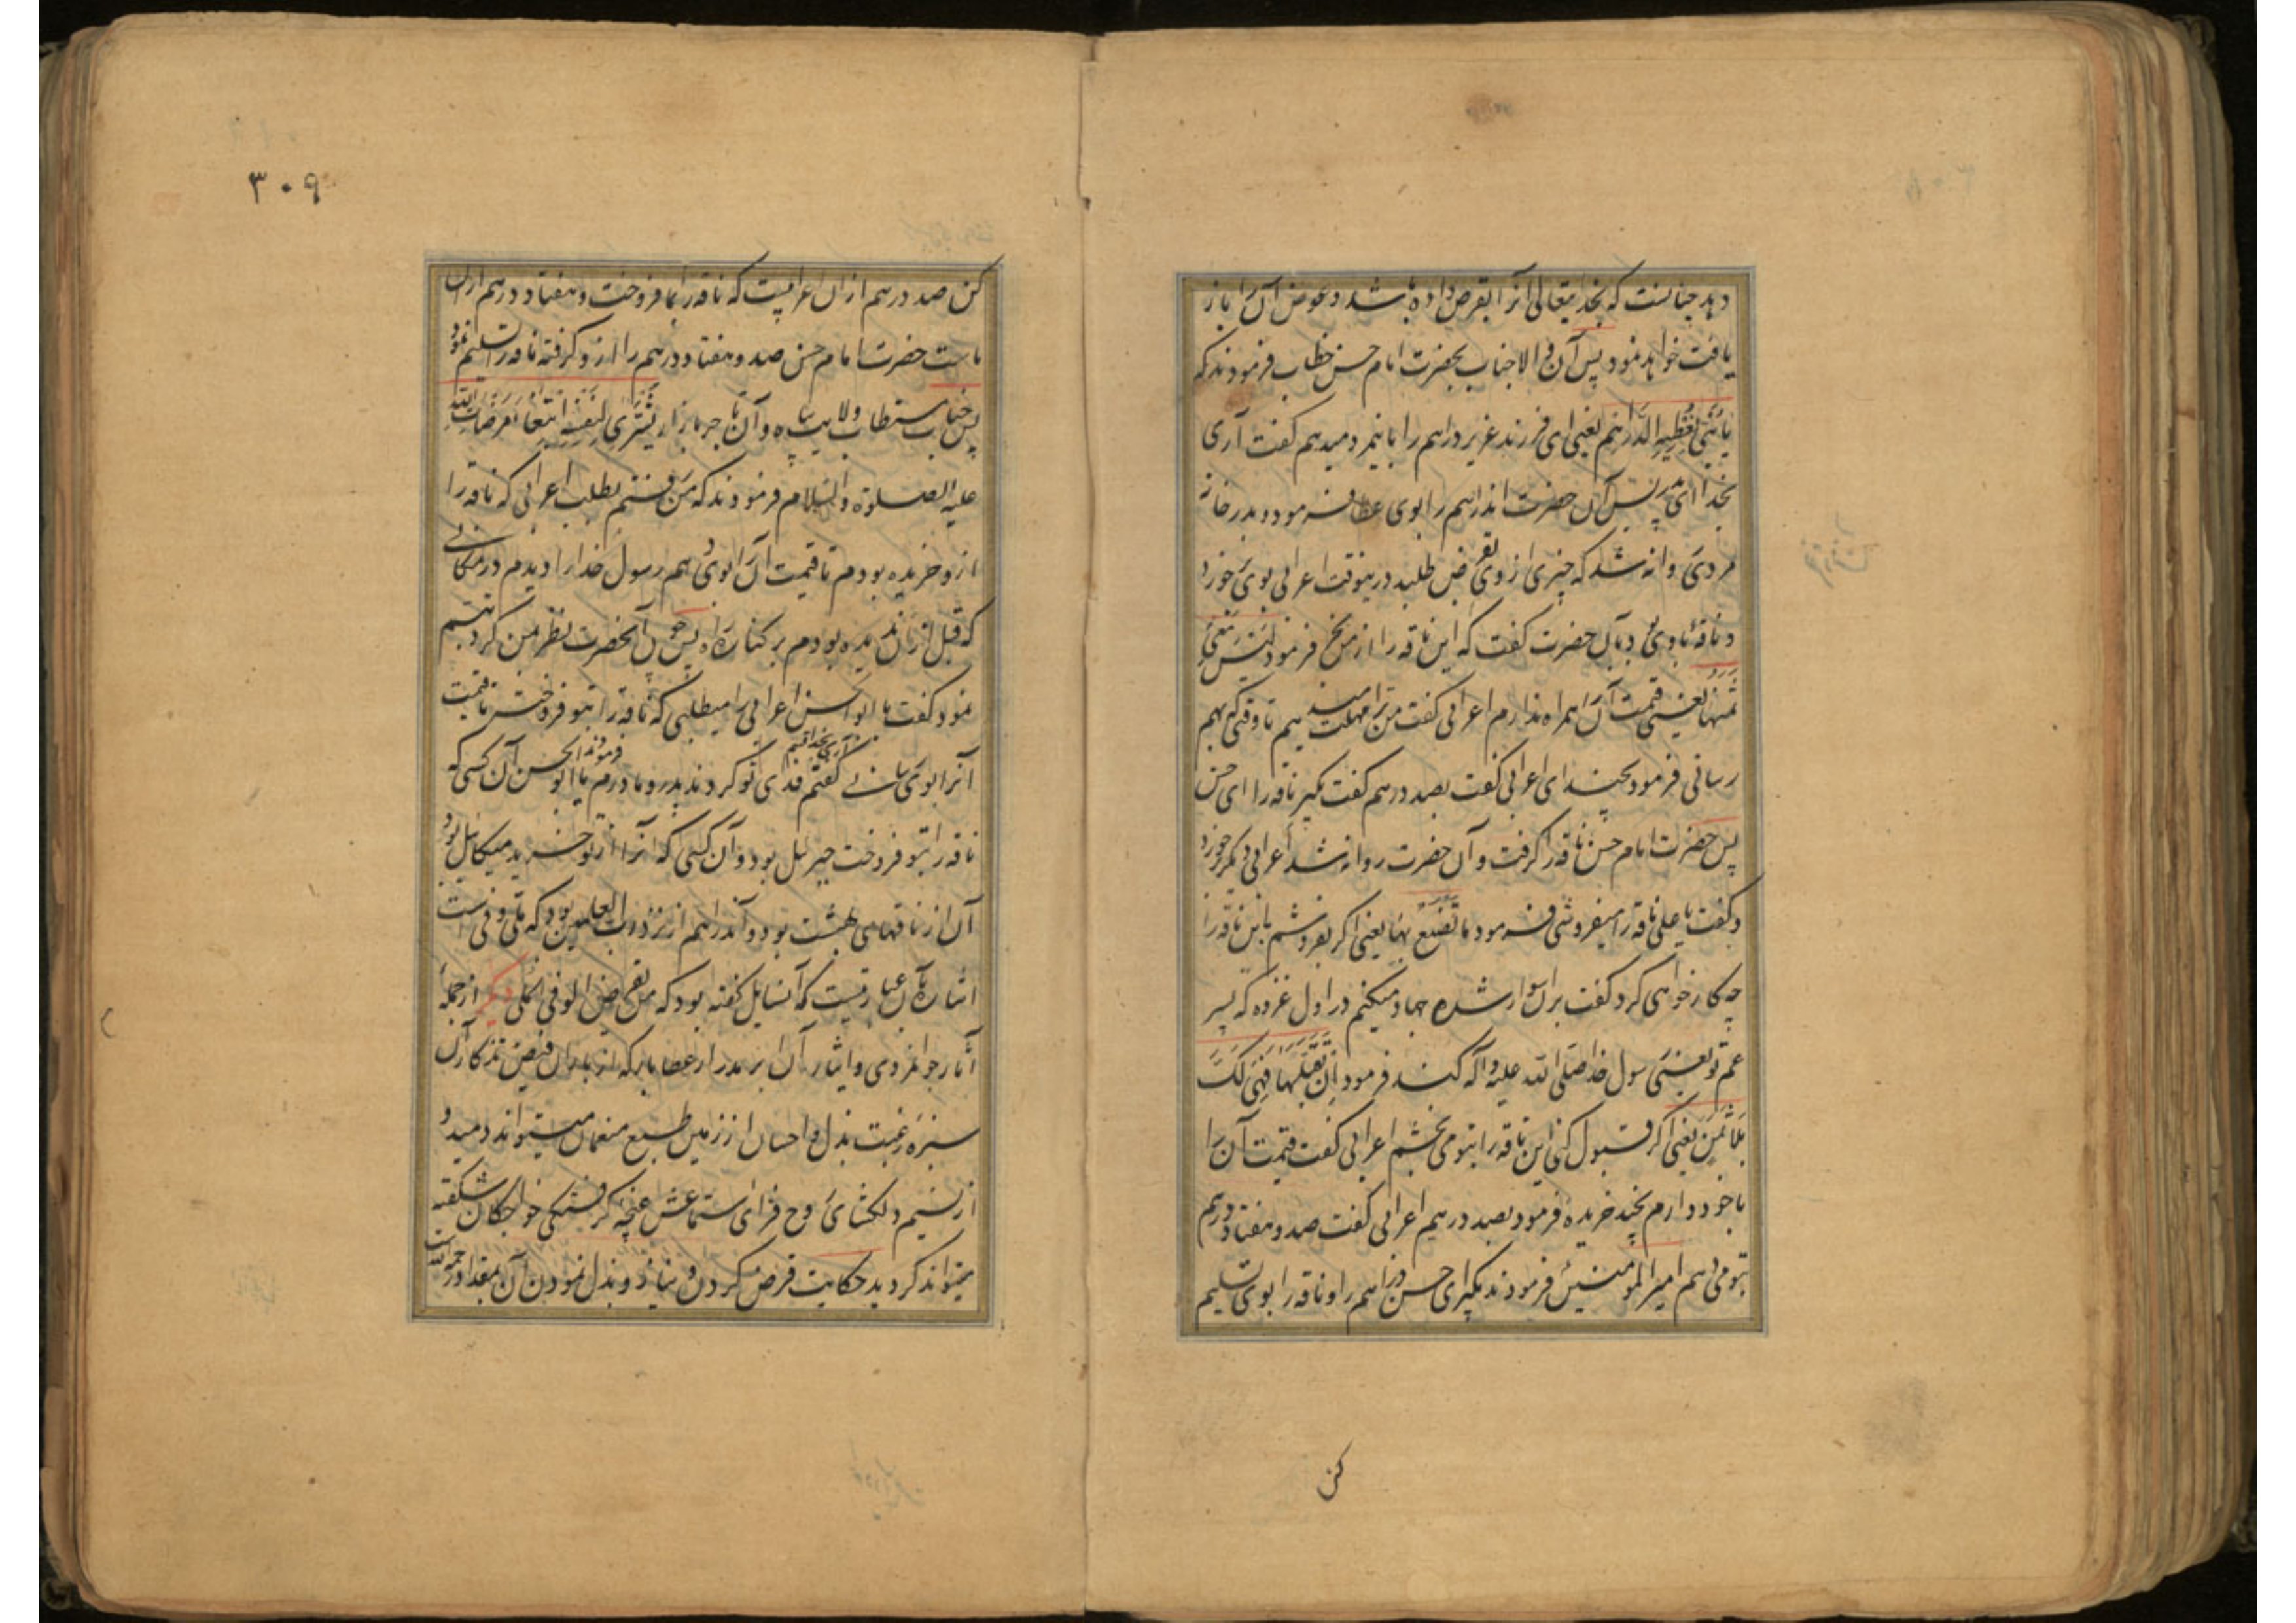 دهد چنانست که بخدایتعالی آنرا بقرض داده باشد و عوض آن را باز
یافت خواهد نمود پس آن والاجناب بحضرت امام حسن خطاب فرمودند که
یا بنی نعطیه الدراهم یعنی ای فرزند عزیز دراهم را باینمرد میدهم گفت آری
بخدا ای پدر پس آن حضرت اندراهم را بوی عطا فرمود و بدر خانه
مردی روانه شد که چیزی از وی بقرض طلبد درینوقت اعرابی بوی خورد
و ناقه با وی بود بآن حضرت گفت که این ناقه را از من بخر فرمود لیس معی
ثمنها یعنی قیمت آن همراه ندارم اعرابی گفت من ترا مهلت میدهیم تا وقتی که بهم
رسانی فرمود بچند ای اعرابی گفت بصد درهم گفت بگیر ناقه را ای حسن
پس حضرت امام حسن ناقه را گرفت و آن حضرت روانه شد اعرابی دیگر خورد
و گفت یا علی ناقه را میفروشی فرمود ما تصنع بها یعنی اگر بفروشم باین ناقه را
چه کار خواهی کرد گفت بران سوار شده جهاد میکنم در اول غزوه که پسر
عم تو یعنی رسول خدا صلی الله علیه و آله کند فرمود ان تقبلها فهی لک
بلا ثمن یعنی اگر قبول کنی این ناقه را بتو می بخشم اعرابی گفت قیمت آن را
با خود دارم بچند خریده فرمود بصد درهم اعرابی گفت صد و هفتاد درهم
بتو میدهم امیرالمومنین فرمودند بگیر ای حسن دراهم را و ناقه را بوی تسلیم
کن
۳۰۹
کن صد درهم از ان اعرابیست که ناقه را بما فروخت و هفتاد درهم از ان
ماست حضرت امام حسن صد و هفتاد درهم را از و گرفته ناقه را تسلیم نمود
پس جناب مستطاب ولایت پناه و آن تاجر بازار یشتری نفسه ابتغاء مرضات الله
علیه الصلوة والسلام فرمودند که من رفتم بطلب اعرابی که ناقه را
از و خریده بودم تا قیمت آن را بوی دهم رسول خدا را دیدم در مکانی
که قبل از ان ندیده بودم بر کناره راه پس چون آنحضرت نظر بمن کرد تبسم
نمود و گفت یا ابوالحسن اعرابی را میطلبی که ناقه را بتو فروخت تا قیمت
آنرا بوی رسانی گفتم آری بخدا قسم فدای تو کردند پدر و مادرم فرمودند یا ابوالحسن آن کسی که
ناقه را بتو فروخت جبرئیل بود و آن کسی که آنرا از تو خرید میکائیل بود
آن از ناقهای بهشت بود و آندراهم از نزد رب العالمین بود که ملی و فی است
اشاره بآن عبارتست که آنسایل گفته بود که من یقرض الوفی الملی دیگر از جمله
آثار جوانمردی و ایثار آن برمدار اعطا بابرکه از باران فیض تذکار آن
سبزه رغبت بذل و احسان از زمین طبع منعمان میتواند دمید و
از نسیم دلگشای روح فزای استماعش غنچه گرفتگی خواجگان شکفته
میتواند گردید حکایت قرض کردن دینار و بذل نمودن آن بمقداد رحمة الله